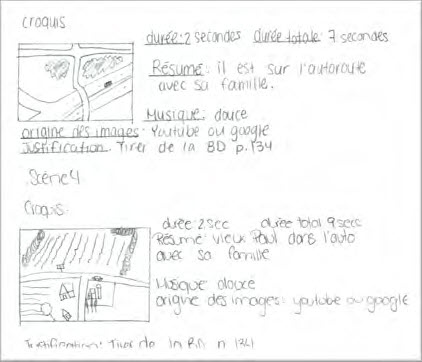 croquis
durée: 2 secondes durée totale: 7 secondes
Résumé: il est sur l'autoroute
avec sa famille.
Musique: douce
origine des images: Youtube ou google
Justification: Tirer de la BD p.134
Scène 4
Croquis:
durée 2 sec durée total 9 secs
Résumé: vieux Paul dans l'auto
avec sa famille
Musique douce
origine des images: youtube ou google
Justification: Tirer de la BD p 134